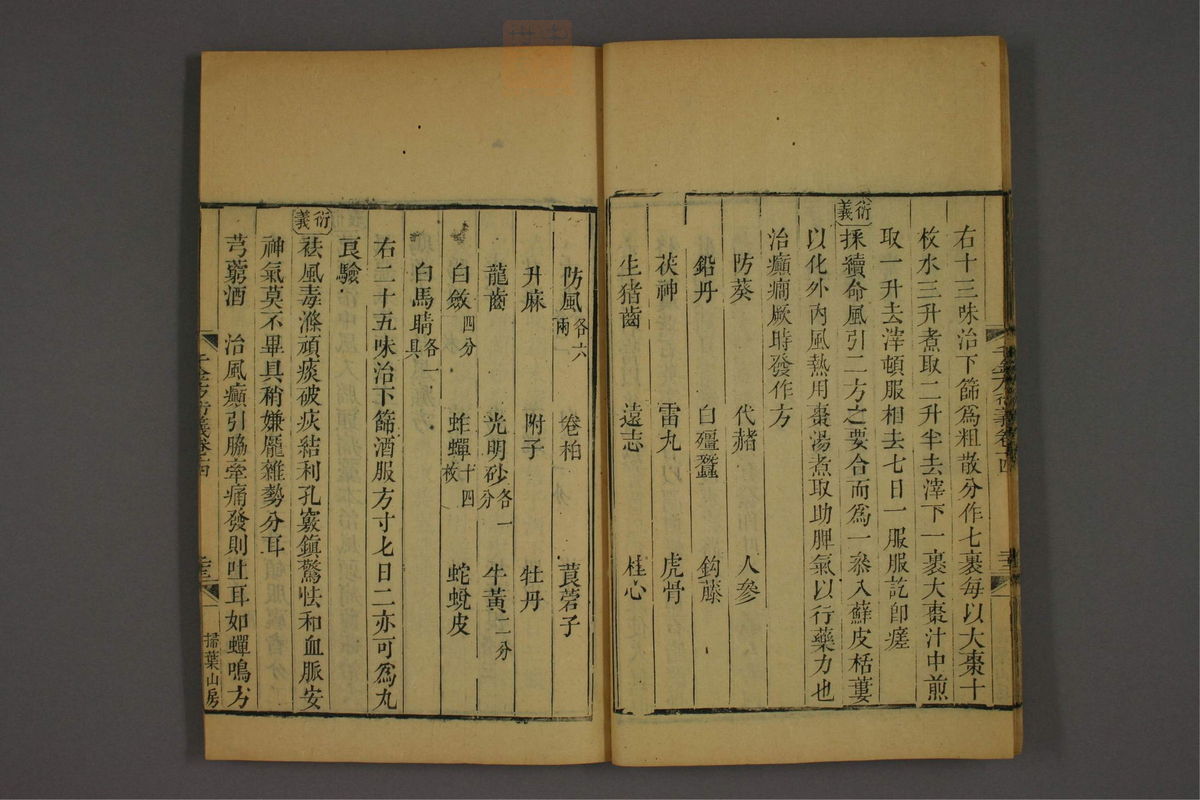 右十三味治下篩爲粗散分作七裹每以大棗十
枚水三升煮取二升半去滓下一裹大棗汁中煎
取一升去滓頓服相去七日一服服訖卽瘥
衍義
採續命風引二方之要合而爲一叅入蘇皮栝蔞
以化外內風熱用棗湯煮取助脾氣以行藥力也
治癲癇厥時發作方
防葵 代赭 人參
鉛丹 白殭蠶 鈎藤
茯神 雷丸 虎骨
生猪齒 遠志 桂心
防風各六兩 卷柏 莨菪子
升麻 附子 牡丹
龍齒 光明砂各一分 牛黃二分
白斂四分 蚱蟬十四枚 蛇蛻皮
白馬睛各一具
右二十五味治下篩酒服方寸匕日二亦可爲丸
良驗
衍義
祛風毒滌頑痰破痰結利孔竅鎮驚怯和血脈安
神氣莫不畢具稍嫌龐雜勢分耳
芎藭酒 治風癲引脇牽痛發則吐耳如蟬鳴方
掃葉山房